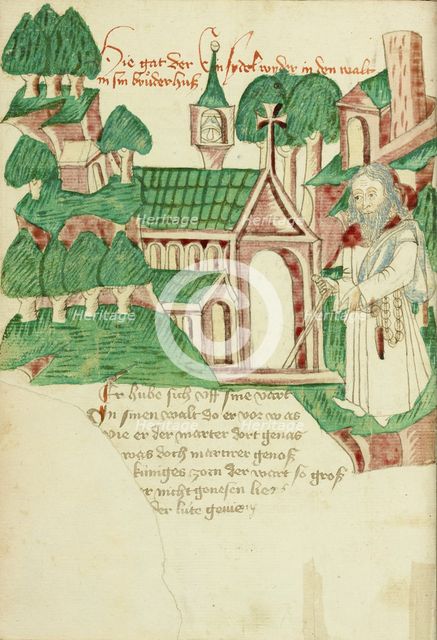 Hie gat der Einsydel wyder in den walt
in sin brůder huß
Er hube sich vff sine vart
In sinen walt do er vor was
wie er der marter dort genas
was doch martrer genoß
kúniges zorn der wart so groß
er nicht genesen ließ
der lúte
Heritage
Heritage
Heritage
Heritage
Heritage
Heritage
Heritage
Heritage